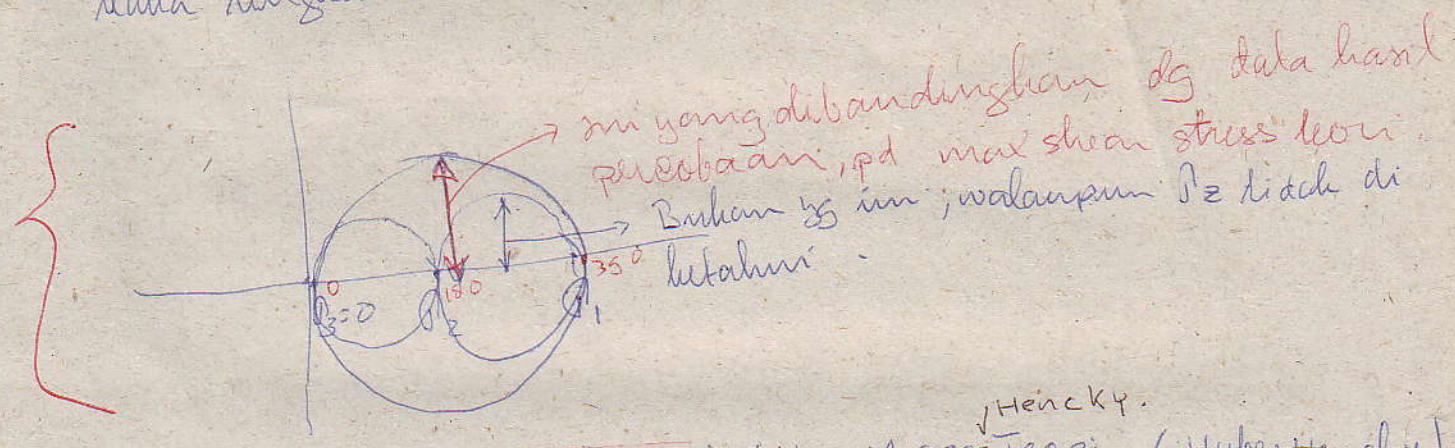 ini yang dibandingkan dg data hasil
percobaan, pd max shear stress teori.
Bukan yg ini, walaupun σ2 tidak di
ketahui.
0 180 350
σ3=0 σ2 σ1
Hencky.